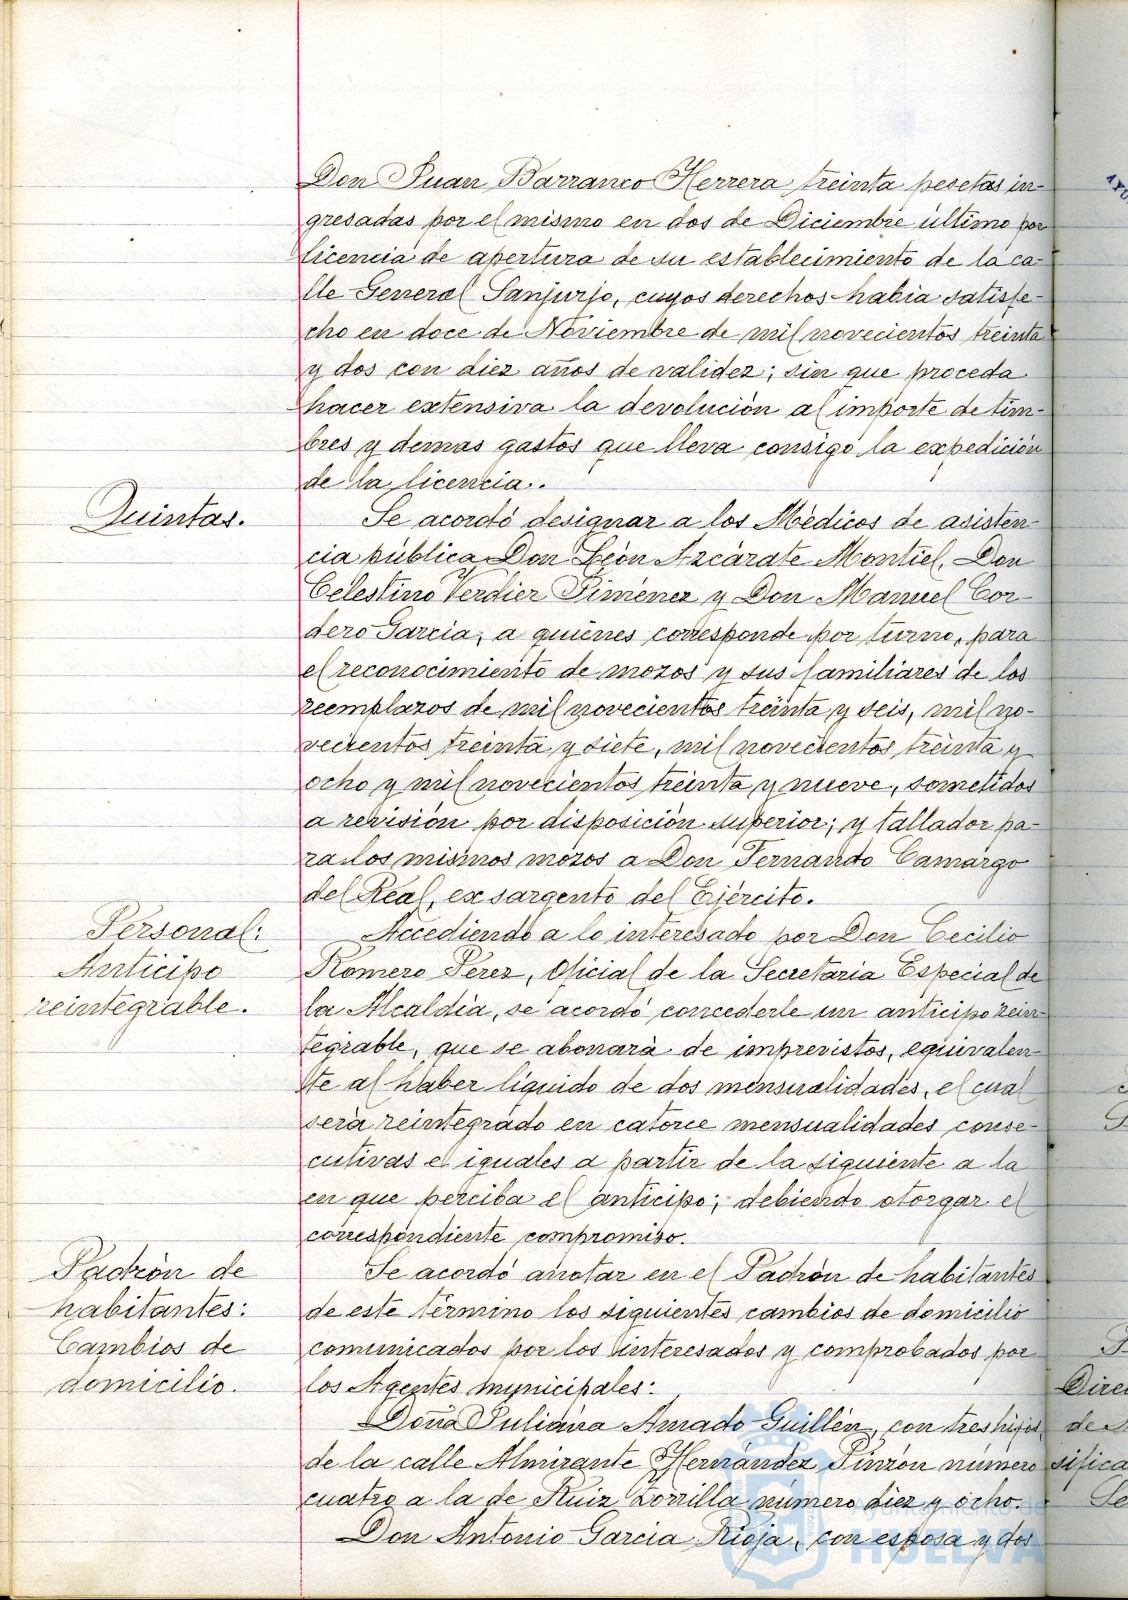 Don Juan Barranco Herrera treinta pesetas in-
gresadas por el mismo en dos de Diciembre último por
licencia de apertura de su establecimiento de la ca-
lle General Sanjurjo, cuyos derechos habia satisfe-
cho en doce de Noviembre de mil novecientos treinta
y dos con diez años de validez; sin que proceda
hacer extensiva la devolución al importe de tim-
bres y demas gastos que lleva consigo la expedición
de la licencia.
Quintas.
Se acordó designar a los Médicos de asisten-
cia pública Don León Azcárate Montiel, Don
Celestino Verdier Jiménez y Don Manuel Cor-
dero Garcia, a quienes corresponde por turno, para
el reconocimiento de mozos y sus familiares de los
reemplazos de mil novecientos treinta y seis, mil no-
vecientos treinta y siete, mil novecientos treinta y
ocho y mil novecientos treinta y nueve, sometidos
a revisión por disposición superior; y tallador pa-
ra los mismos mozos a Don Fernando Camargo
del Real, ex sargento del Ejército.
Personal:
Anticipo
reintegrable.
Accediendo a lo interesado por Don Cecilio
Romero Perez, Oficial de la Secretaria Especial de
la Alcaldia, se acordó concederle un anticipo rein-
tegrable, que se abonará de imprevistos, equivalen-
te al haber líquido de dos mensualidades, el cual
será reintegrado en catorce mensualidades conse-
cutivas e iguales a partir de la siguiente a la
en que perciba el anticipo; debiendo otorgar el
correspondiente compromiso.
Padrón de
habitantes:
Cambios de
domicilio.
Se acordó anotar en el Padrón de habitantes
de este término los siguientes cambios de domicilio
comunicados por los interesados y comprobados por
los Agentes municipales:
Doña Juliana Amado Guillén, con tres hijos,
de la calle Almirante Hernández Pinzón número
cuatro a la de Ruiz Zorrilla número diez y ocho.
Don Antonio Garcia Rioja, con esposa y dos
Ayuntamiento de
HUELVA